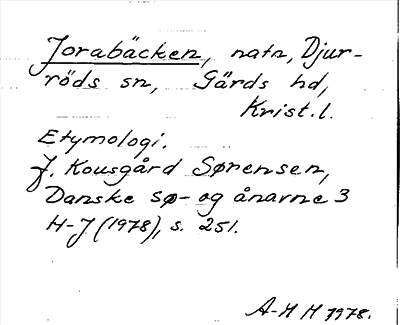 Jorabäcken, natn, Djur-
röds sn, Gärds hd,
Krist. l.
Etymologi.
J. Kousgård Sørensen,
Danske sø- og ånavne 3
H-J (1978), s. 251.
A-H H 1978.